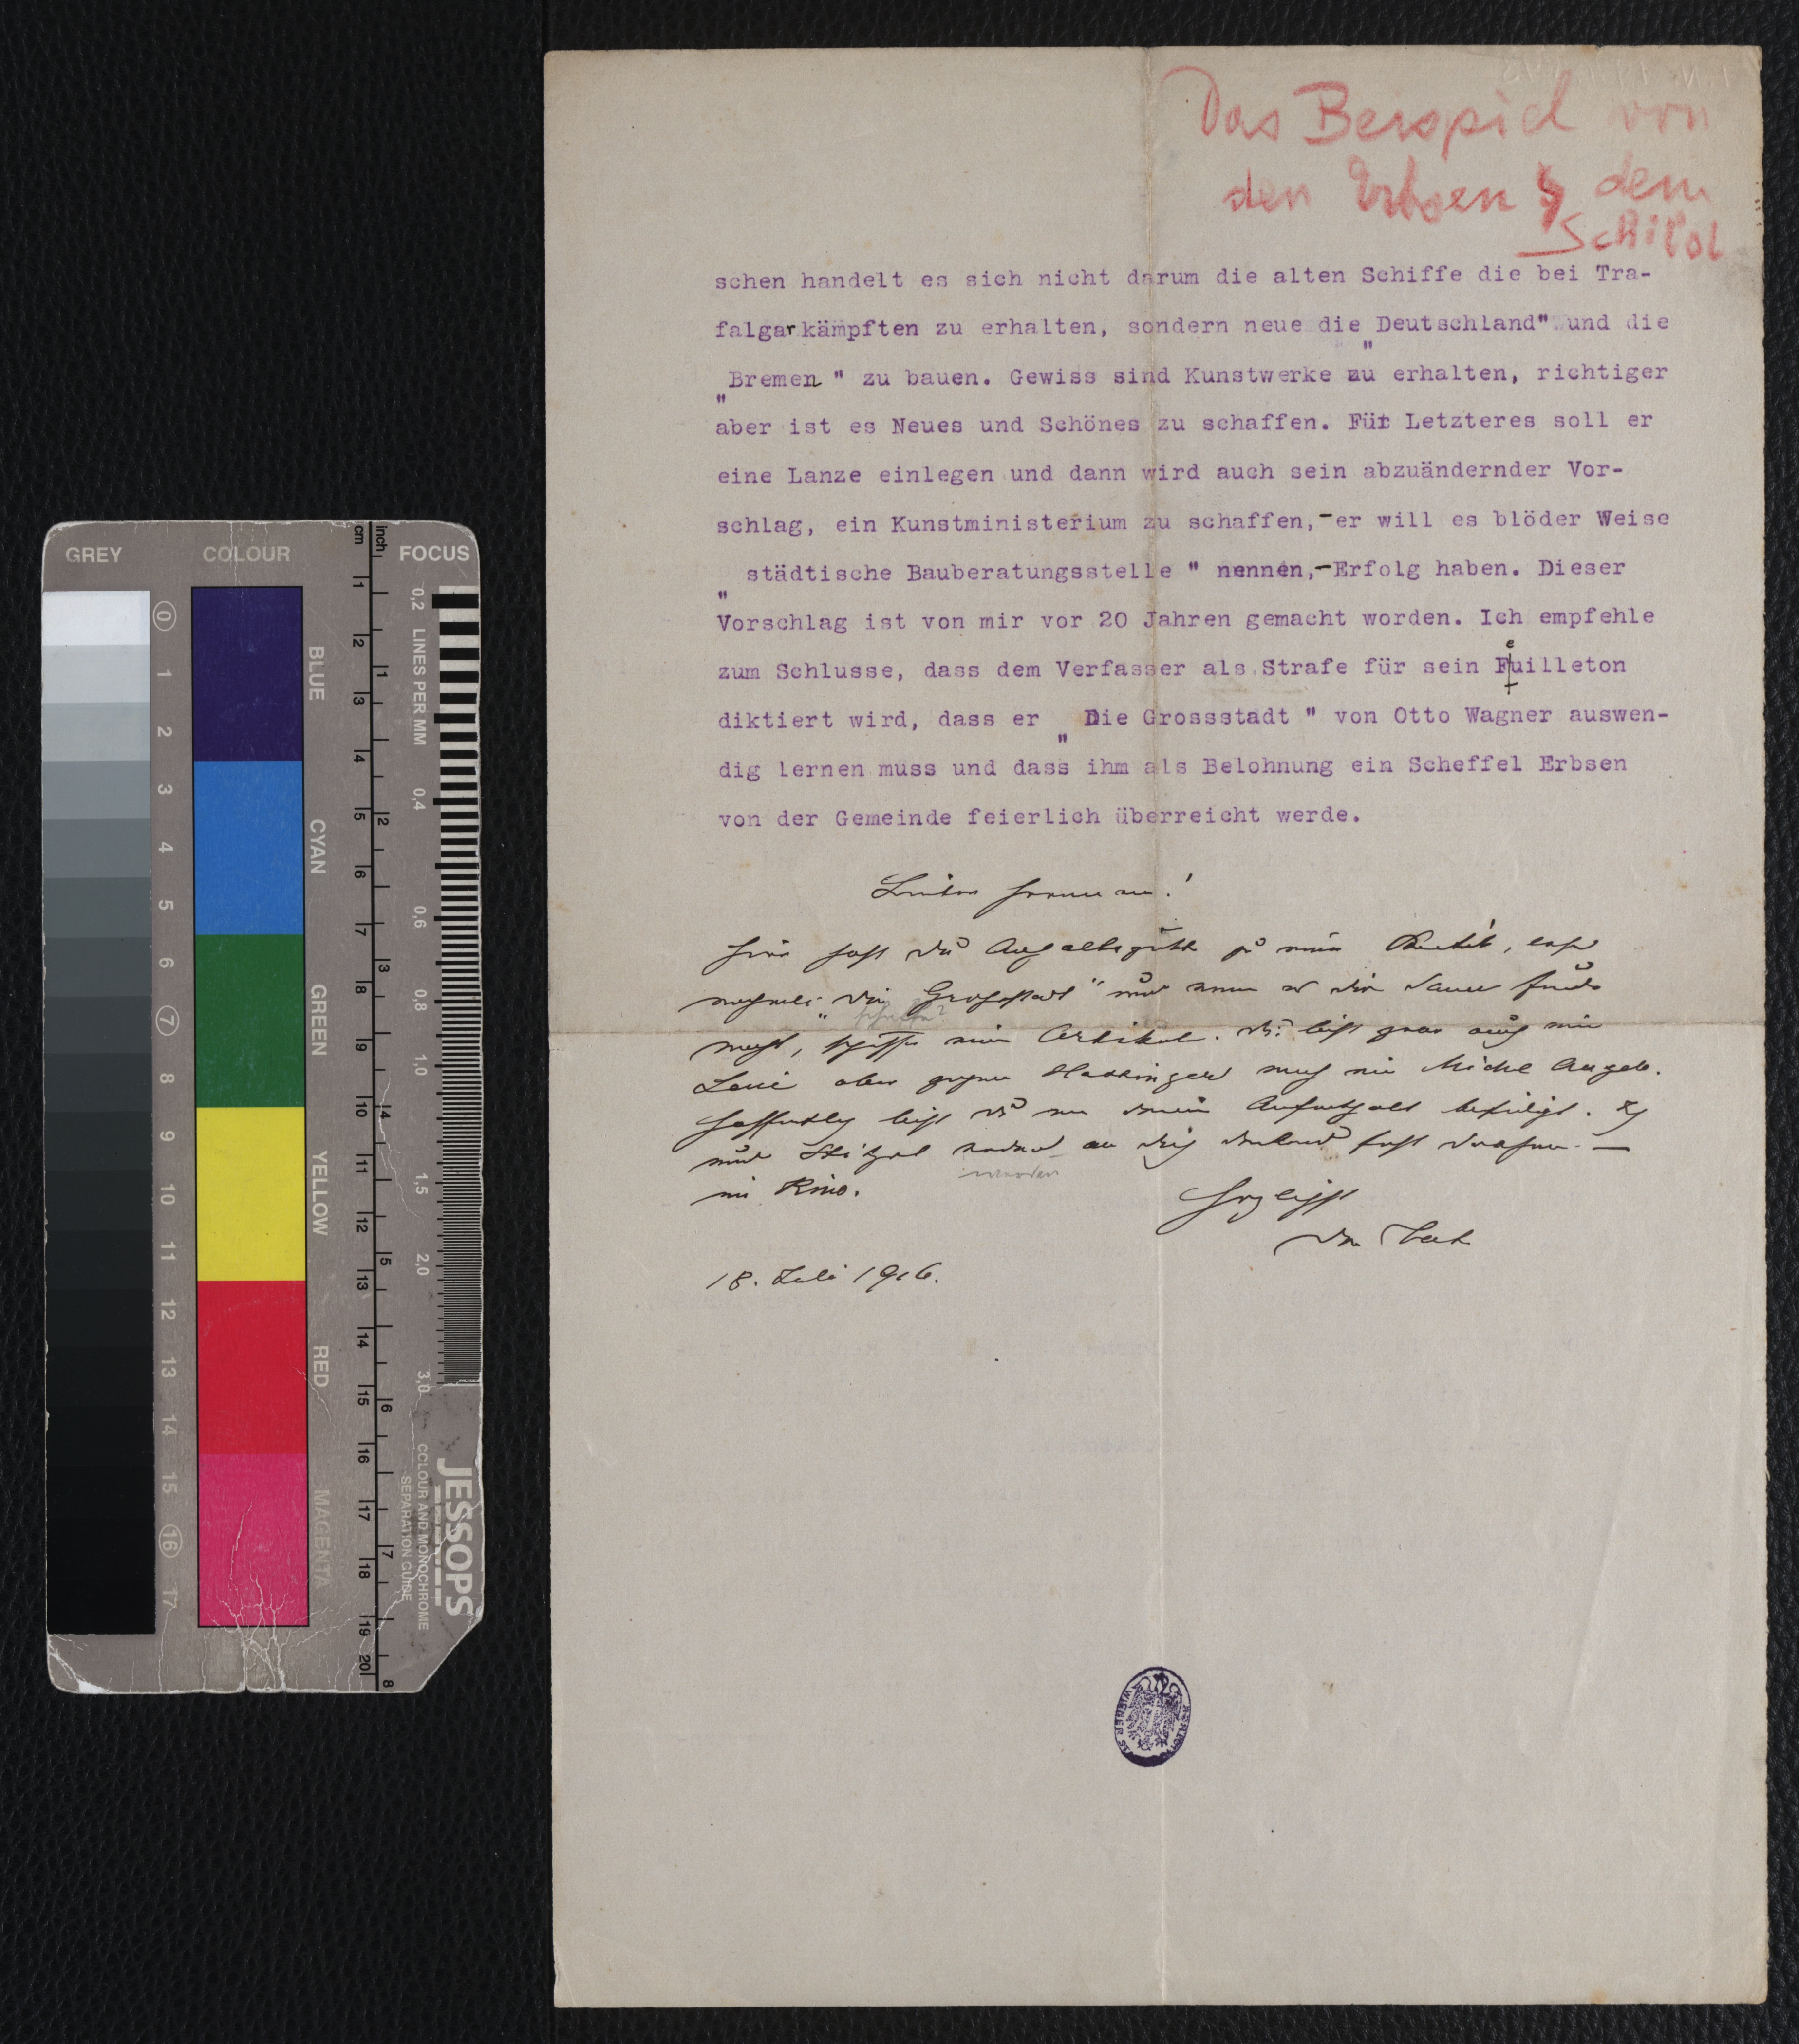 Das Beispiel von
den Erbsen & dem
Schild
schen handelt es sich nicht darum die alten Schiffe die bei Tra-
falgar kämpften zu erhalten, sondern neue die „Deutschland" und die
„Bremen " zu bauen. Gewiss sind Kunstwerke zu erhalten, richtiger
aber ist es Neues und Schönes zu schaffen. Für Letzteres soll er
eine Lanze einlegen und dann wird auch sein abzuändernder Vor-
schlag, ein Kunstministerium zu schaffen,-er will es blöder Weise
„städtische Bauberatungsstelle " nennen,-Erfolg haben. Dieser
Vorschlag ist von mir vor 20 Jahren gemacht worden. Ich empfehle
zum Schlusse, dass dem Verfasser als Strafe für sein Feuilleton
diktiert wird, dass er „ Die Grossstadt " von Otto Wagner auswen-
dig lernen muss und dass ihm als Belohnung ein Scheffel Erbsen
von der Gemeinde feierlich überreicht werde.
Lieber Hermann!
hier hast du Anhaltspunkte zu
nochmals „die Großstadt" und wenn
Artikel. Du bist zwar auch
aber gegen Hassinger noch ein Michel Angelo.
Hoffentlich bist du mit deinem Aufenthalt befriedigt. Ich
und an dich
im Kino.
Herzlichst
dein
18. Juli 1916.
GREY
COLOUR
FOCUS
cm
inch
BLUE
CYAN
GREEN
YELLOW
RED
MAGENTA
LINES PER MM
0,2
0,4
0,6
0,8
1,0
1,5
2,0
3,0
0
1
2
3
4
5
6
7
8
9
10
11
12
13
14
15
16
17
1
2
3
4
5
6
7
8
9
10
11
12
13
14
15
16
17
18
19
20
1
2
3
4
5
6
7
8
JESSOPS
COLOUR AND MONOCHROME
SEPARATION GUIDE